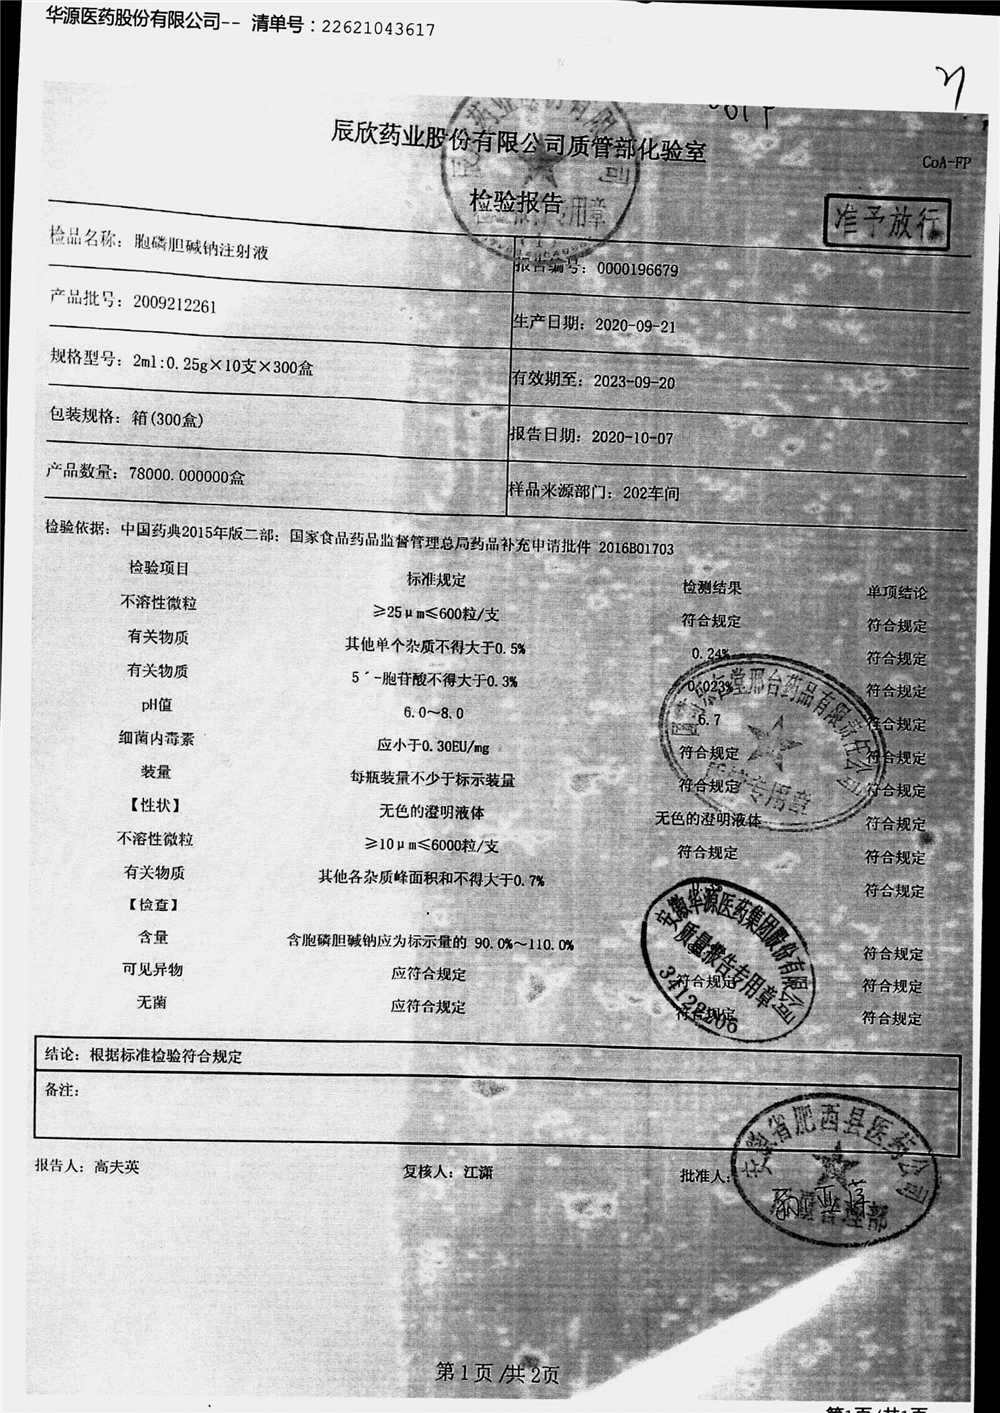 华源医药股份有限公司-- 清单号：22621043617
辰欣药业股份有限公司质管部化验室
CoA-FP
检验报告
准予放行
检品名称：胞磷胆碱钠注射液
报告编号：0000196679
产品批号：2009212261
生产日期：2020-09-21
规格型号：2ml:0.25g×10支×300盒
有效期至：2023-09-20
包装规格：箱(300盒)
报告日期：2020-10-07
产品数量：78000.000000盒
样品来源部门：202车间
检验依据：中国药典2015年版二部；国家食品药品监督管理总局药品补充申请批件 2016B01703
检验项目 标准规定 检测结果 单项结论
不溶性微粒 ≥25μm≤600粒/支 符合规定 符合规定
有关物质 其他单个杂质不得大于0.5% 0.24% 符合规定
有关物质 5´-胞苷酸不得大于0.3% 0.023% 符合规定
pH值 6.0～8.0 6.7 符合规定
细菌内毒素 应小于0.30EU/mg 符合规定 符合规定
装量 每瓶装量不少于标示装量 符合规定 符合规定
【性状】 无色的澄明液体 无色的澄明液体 符合规定
不溶性微粒 ≥10μm≤6000粒/支 符合规定 符合规定
有关物质 其他各杂质峰面积和不得大于0.7% 符合规定
【检查】
含量 含胞磷胆碱钠应为标示量的 90.0%～110.0% 符合规定
可见异物 应符合规定 符合规定 符合规定
无菌 应符合规定 符合规定 符合规定
安徽华源医药集团股份有限公司
质量报告专用章
34122206
结论：根据标准检验符合规定
备注：
安徽省肥西县医药公司
报告人：高夫英 复核人：江潇 批准人：
第1页/共2页